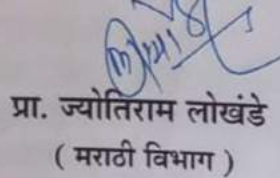 प्रा. ज्योतिराम लोखंडे
( मराठी विभाग )